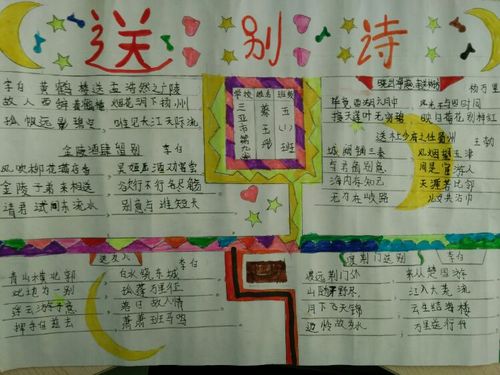 送别诗
李白 黄鹤楼送孟浩然之广陵
故人西辞黄鹤楼 烟花三月下扬州
孤帆远影碧空 唯见长江天际流
金陵酒肆留别 李白
风吹柳花满店香 吴姬压酒劝客尝
金陵子弟来相送 欲行不行各尽觞
请君试问东流水 别意与谁短长
学校 姓名 班级
三亚市第九 五(1)班
杨万里
毕竟西湖六月中 风光不与四时同
接天莲叶无穷碧 映日荷花别样红
送杜少府之任蜀州 王勃
城阙辅三秦 风烟望五津
与君离别意 同是宦游人
海内存知己 天涯若比邻
无为在歧路 儿女共沾巾
送友人 李白
青山横北郭 白水绕东城
此地为一别 孤蓬万里征
浮云游子意 落日故人情
挥手自兹去 萧萧班马鸣
渡荆门送别 李白
渡远荆门外 来从楚国游
山随平野尽 江入大荒流
月下飞天镜 云生结海楼
仍怜故乡水 万里送行舟